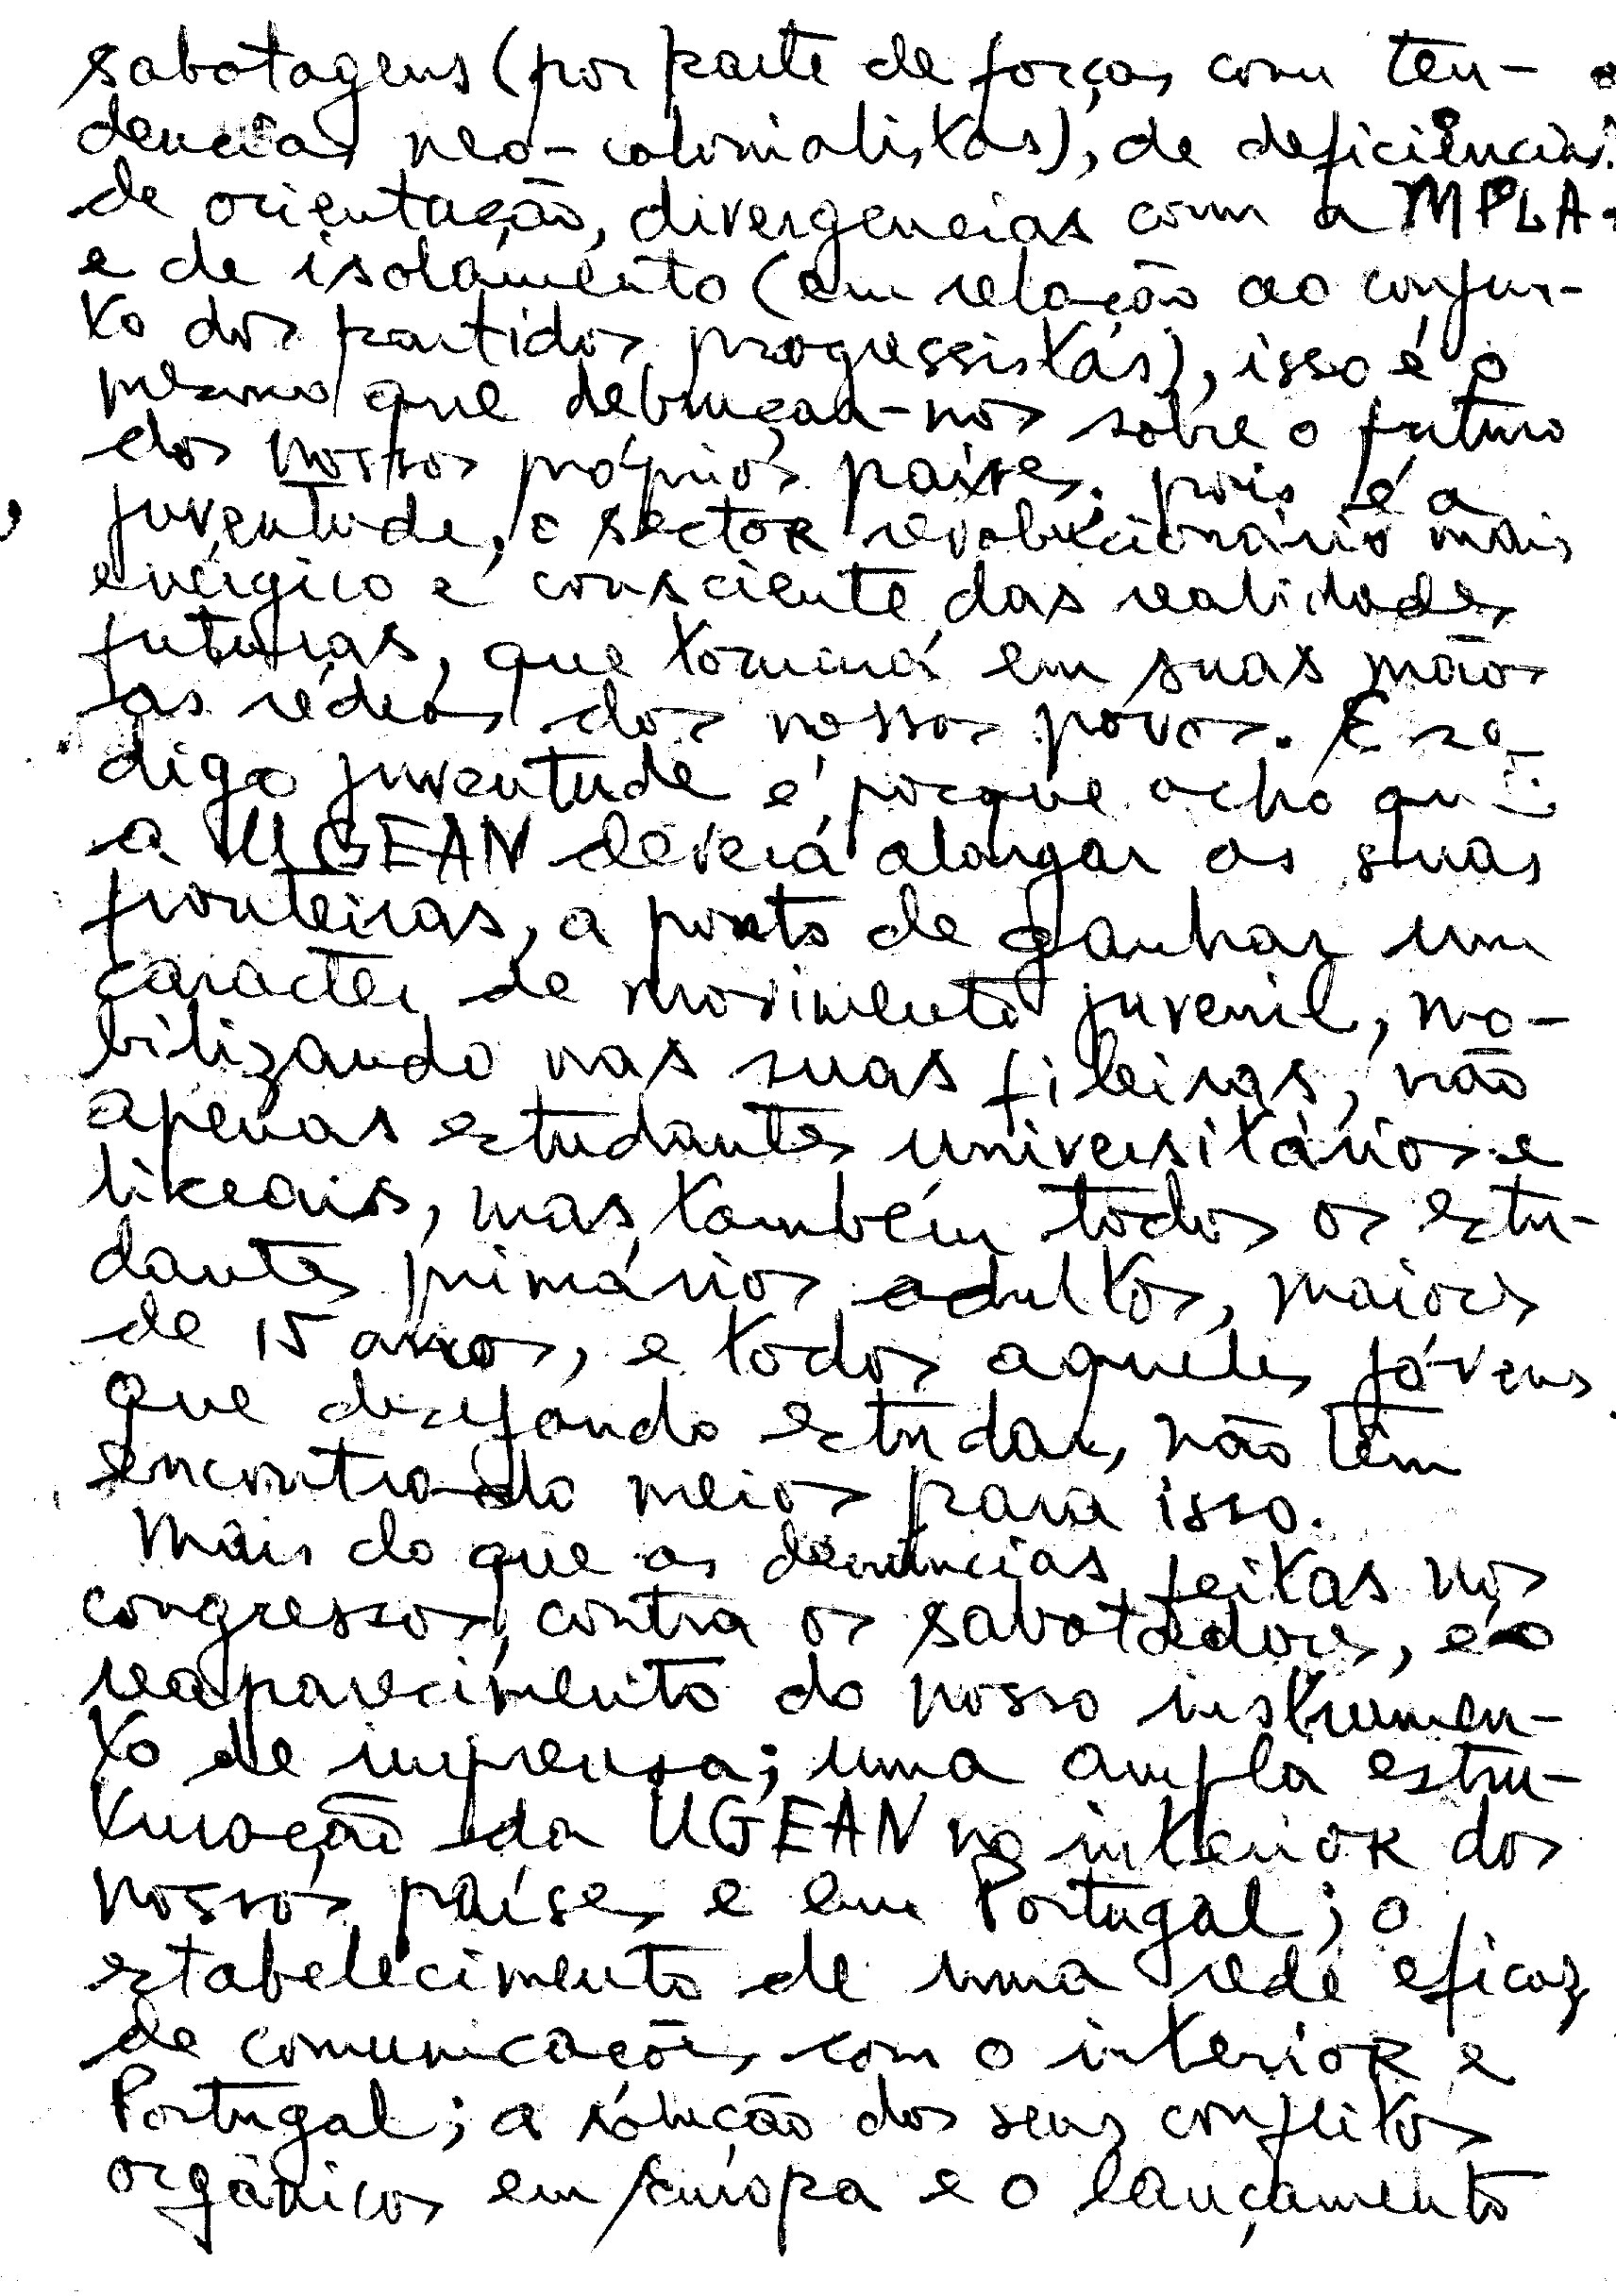 sabotagens (por parte de forças com ten-
dencias neo-colonialistas), de deficiências
de orientação, divergencias com a MPLA
e de isolamento (em relação ao conjun-
to dos partidos progressistas), isso é o
mesmo que debruçar-nos sobre o futuro
dos nossos próprios países. pois é a
juventude, o sector revolucionário mais
enérgico e consciente das realidades
futuras, que tomará em suas mãos
as rédeas dos nossos povos. E se
digo juventude é porque acho que
a UGEAN deverá alargar as suas
fronteiras, a ponto de ganhar um
caracter de movimento juvenil, mo-
bilizando nas suas fileiras, não
apenas estudantes universitários e
liceais, mas também todos os estu-
dantes primários adultos, maiores
de 15 anos, e todos aqueles jóvens
que desejando estudar, não têm
encontrado meios para isso.
Mais do que as denúncias feitas nos
congressos, contra os sabotadores, é o
reaparecimento do nosso instrumen-
to de imprensa; uma ampla estru-
turação da UGEAN no interior dos
nossos países e em Portugal; o
estabelecimento de uma rede eficaz
de comunicações com o interior e
Portugal; a solução dos seus conflitos
orgânicos em Europa e o lançamento